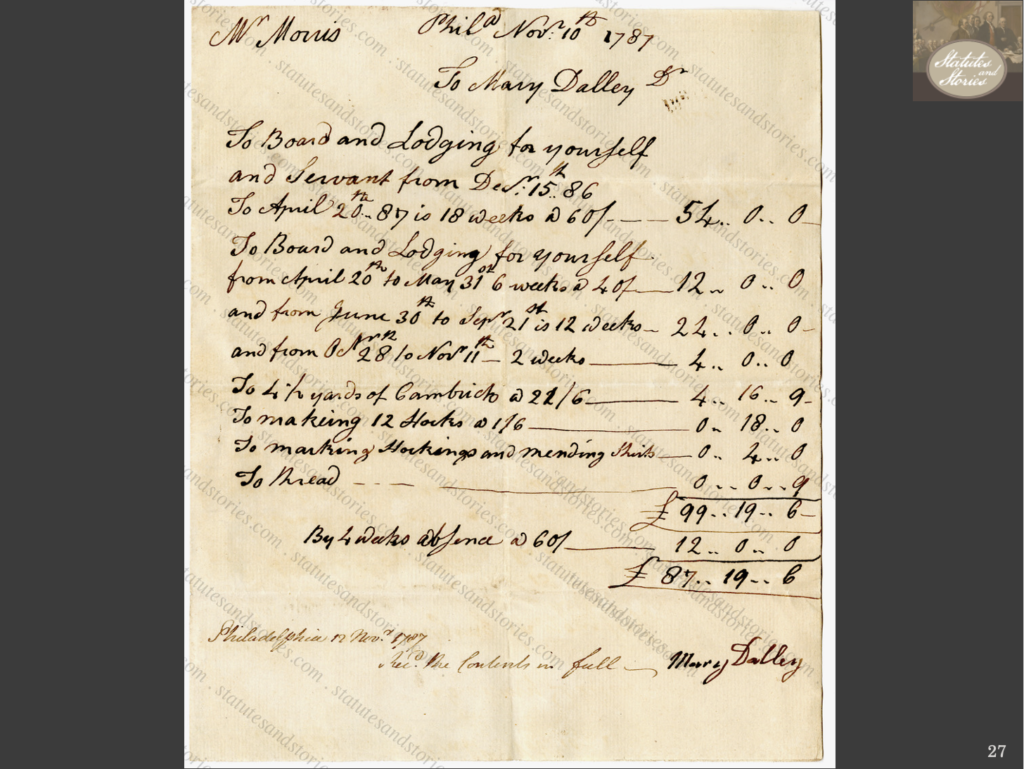 Mr Morris Philad Novr 10th 1787
To Mary Dalley Dr
To Board and Lodging for yourself
and Servant from Decr: 15th.. 86
To April 20th.. 87 is 18 weeks @ 60/- —— 54.. 0.. 0
To Board and Lodging for yourself
from April 20th to May 31st 6 weeks @ 40/— 12.. 0.. 0
and from June 30th to Sepr 21st is 12 weeks— 24.. 0.. 0-
and from Octr 28th to Novr 11th— 2 weeks —— 4.. 0.. 0
To 4 1/2 yards of Cambrick @ 21/6 —— 4.. 16.. 9-
To makeing 12 Stocks @ 1/6 —— 0.. 18.. 0
To marking Stockings and mending Shirts — 0.. 4.. 0
To thread - - - —— 0.. 0.. 9
£ 99.. 19.. 6-
By 4 weeks absence @ 60/ —— 12.. 0.. 0
£ 87.. 19.. 6
Philadelphia 12 Novr. 1787
Recd. the Contents in full — Mary Dalley
Statutes
and
Stories
statutesandstories.com
27